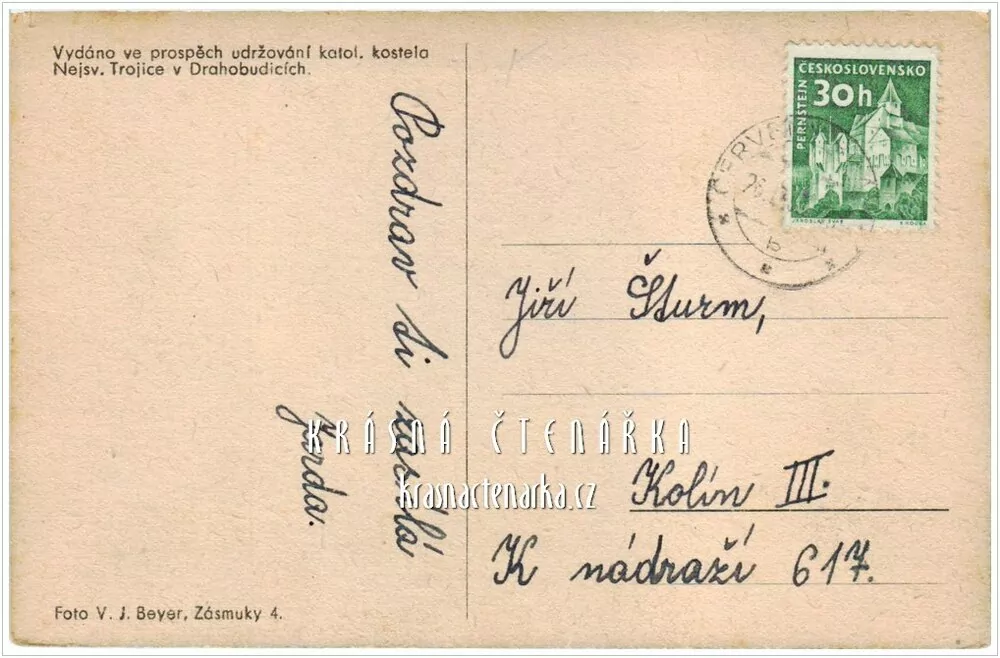 Vydáno ve prospěch udržování katol. kostela
Nejsv. Trojice v Drahobudicích.
Pozdrav ti zasílá
Jarda.
ČESKOSLOVENSKO
30h
PERNŠTEJN
JAROSLAV ŠVÁB
Jiří Šturm,
Kolín III.
K nádraží 617.
KRÁSNÁ ČTENÁŘKA
krasnactenarka.cz
Foto V. J. Beyer, Zásmuky 4.